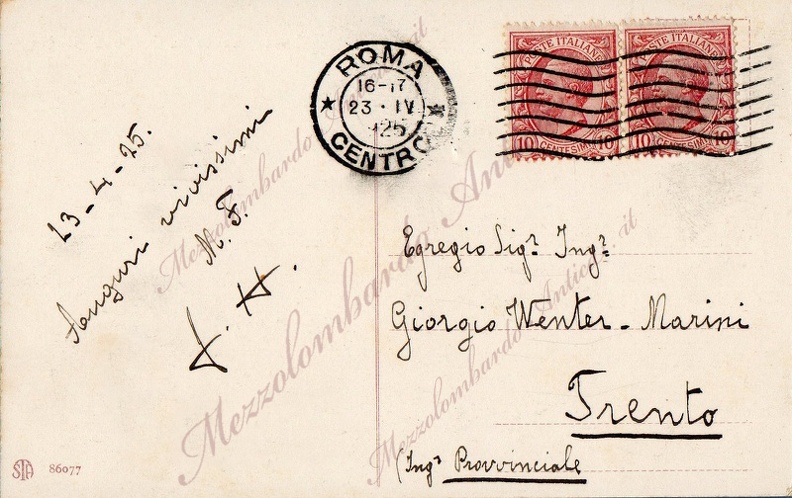 23-4-25.
Auguri vivissimi
M. F.
ROMA
16-17
23 · IV
25
CENTRO
POSTE ITALIANE
10 CENTESIMI 10
POSTE ITALIANE
10 CENTESIMI 10
Egregio Sigr. Ingr.
Giorgio Wenter-Marini
Trento
(Ingr. Provvinciale
STA 86077
Mezzolombardo Antica.it
Mezzolombardo Antica.it
Mezzolombardo Antica.it